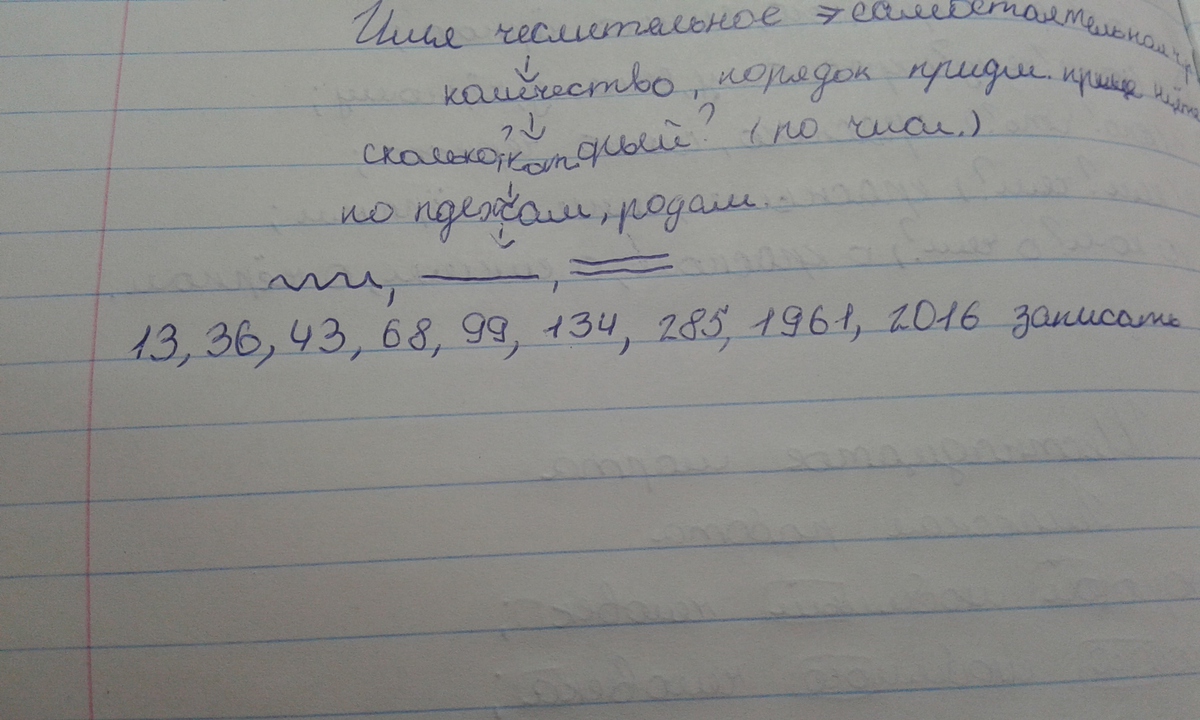 Имя числительное → самостоятельная ч
количество, порядок придм. при
сколько? который? (по числ.)
по пдежам, родам.
13, 36, 43, 68, 99, 134, 285, 1961, 2016 записать